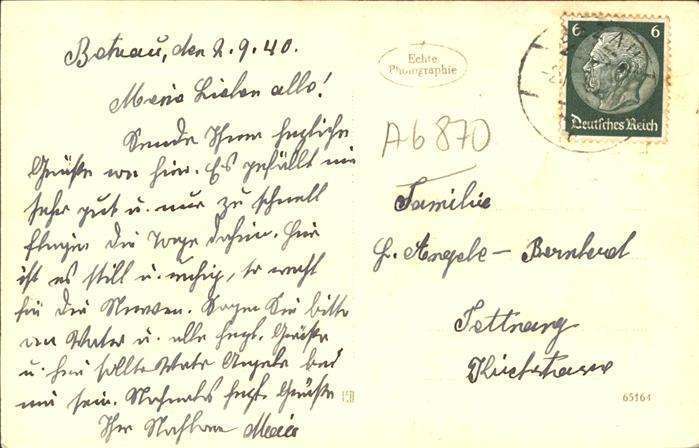 Betnau, den 2.9.40.
Meine Lieben alle!
Sende Ihnen herzliche
Grüße von hier. Es gefällt mir
sehr gut u. nur zu schnell
fliegen die Tage dahin. Hier
ist es still u. ruhig, so recht
für die Nerven. Sagen Sie bitte
an Vater u. alle herzl. Grüße
u. hier sollte Vater Angele bei
mir sein. Nochmals herzl. Grüße
Ihr Nachbar
Echte
Photographie
6 6
Deutsches Reich
A6 870
Familie
Angele - Bernhard
Tettnang
65164